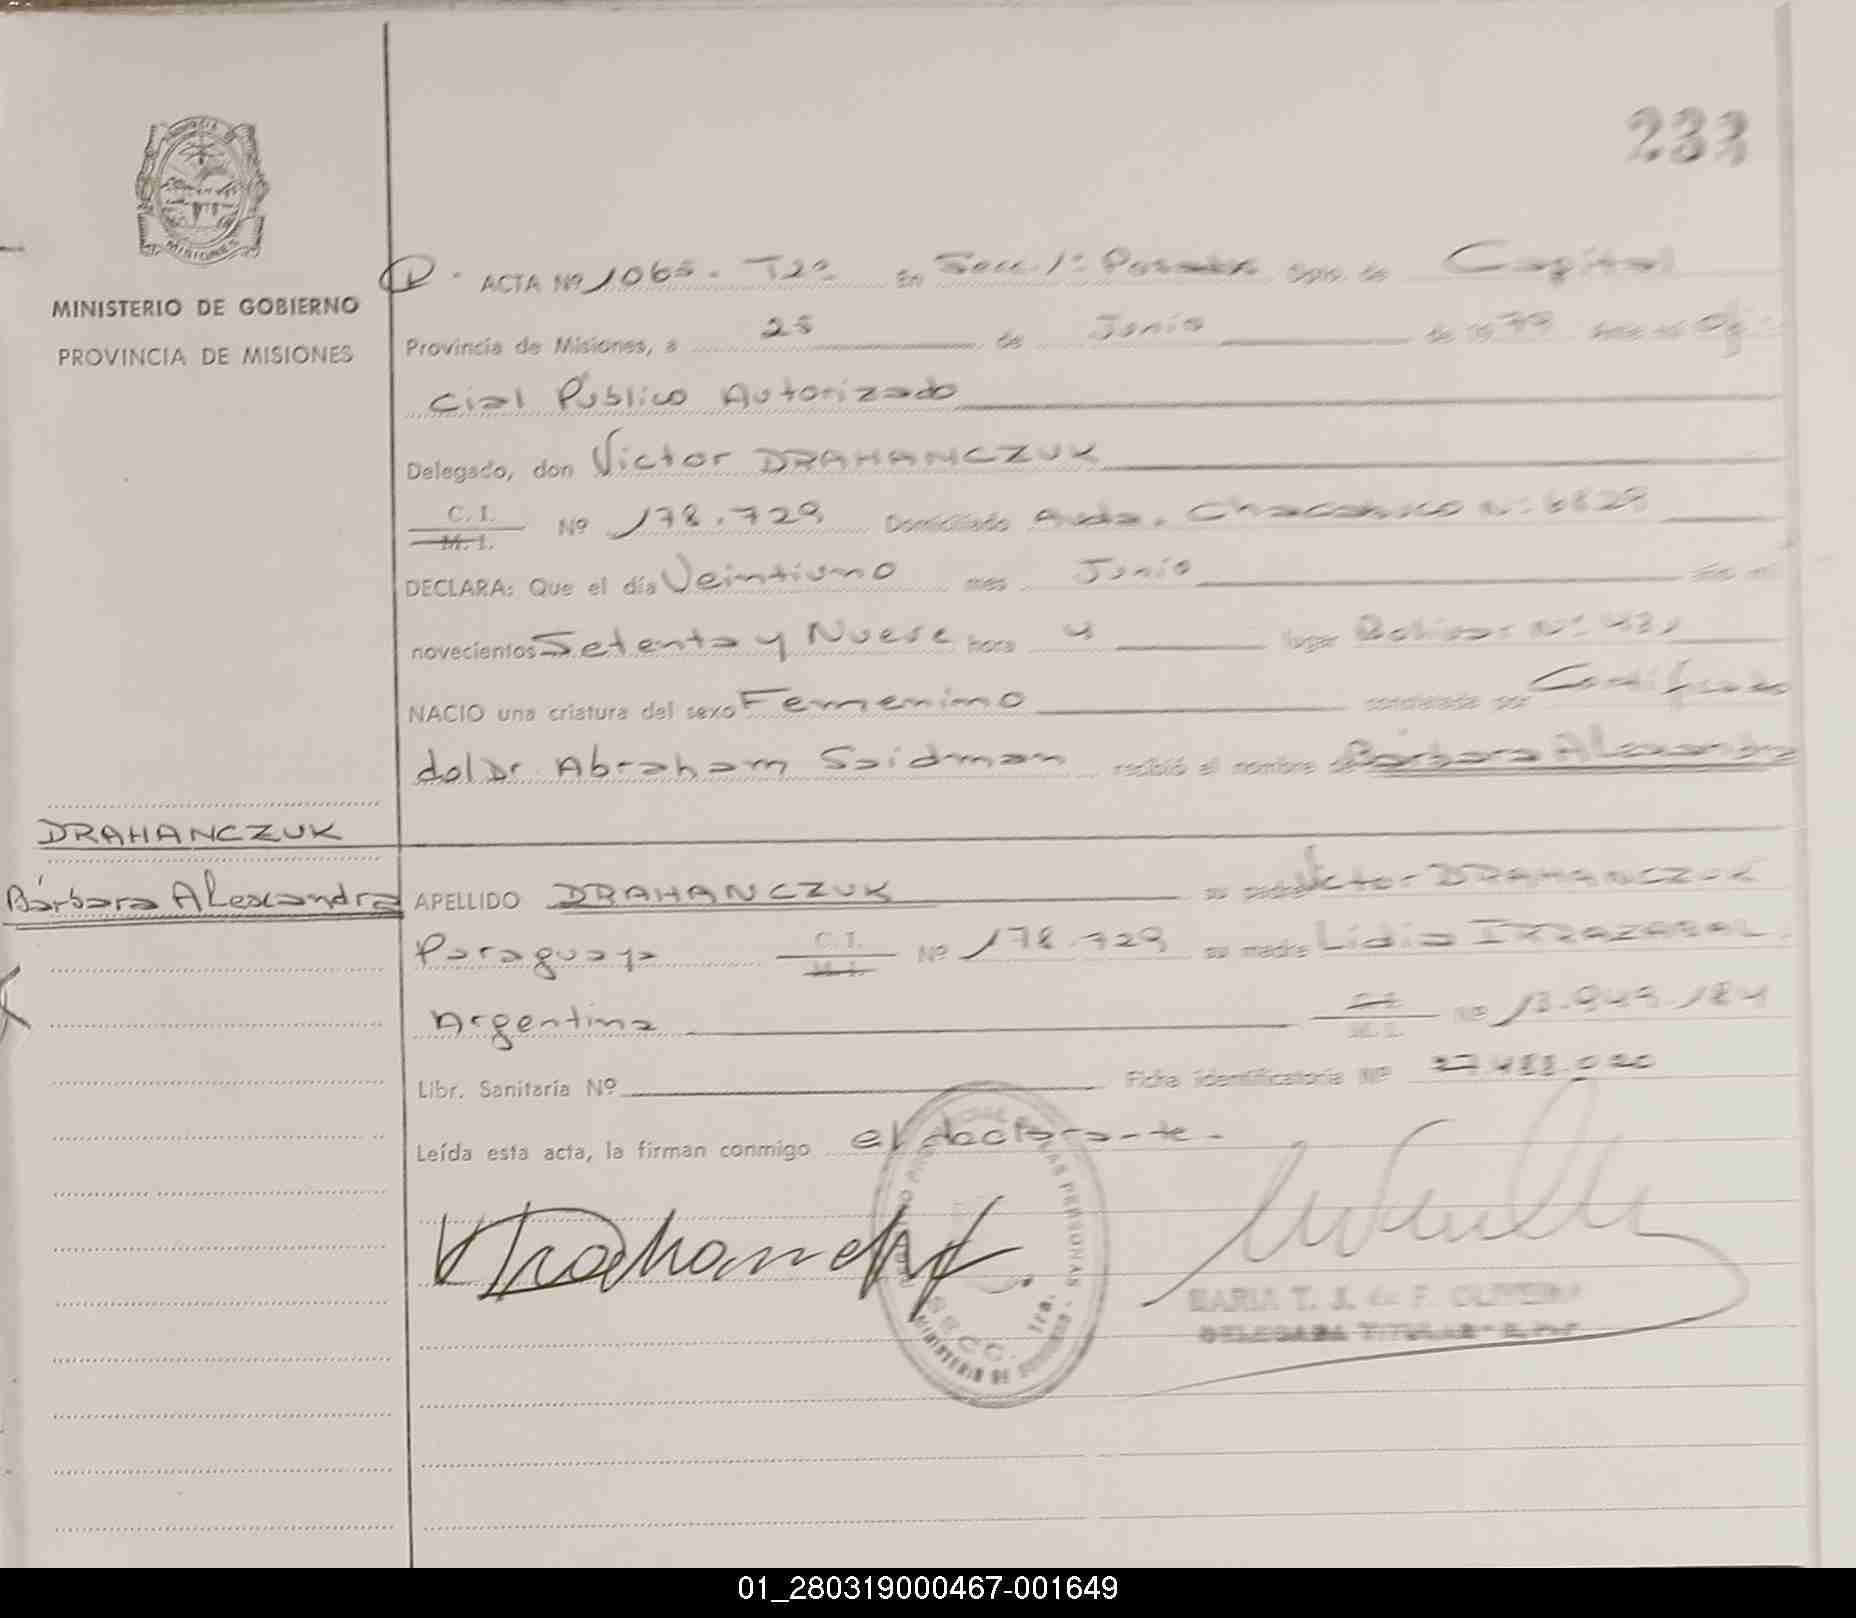 233
PROVINCIA
MISIONES
MINISTERIO DE GOBIERNO
PROVINCIA DE MISIONES
ACTA Nº 1065. T2º en Secc. 1º Posadas Dpto. de Capital
Provincia de Misiones, a 25 de Junio de 1979 Ante mí Ofi
cial Público Autorizado
Delegado, don Victor DRAHANCZUK
C. I. M. I. Nº 178.729 Domiciliado Avda. Chacabuco Nº 6829
DECLARA: Que el día Veintiuno mes Junio Año mil
novecientos Setenta y Nueve hora 4 lugar Bolivar Nº
NACIO una criatura del sexo Femenino constatada por Certificado
del Dr. Abraham Saidman recibió el nombre de Bárbara Alexandra
DRAHANCZUK
Bárbara Alexandra
APELLIDO DRAHANCZUK su padre Victor DRAHANCZUK
Paraguaya C. I. M. I. Nº 178.729 su madre Lidia IRRAZABAL.
Argentina C. I. M. I. Nº 13.949.184
Libr. Sanitaria Nº Ficha identificatoria Nº 27.488.020
Leída esta acta, la firman conmigo el declarante.
DE LAS PERSONAS
SECC. 1ra.
MINISTERIO DE GOBIERNO
MARIA T. J. de F. OLIVEIRA
DELEGADA TITULAR
01_280319000467-001649